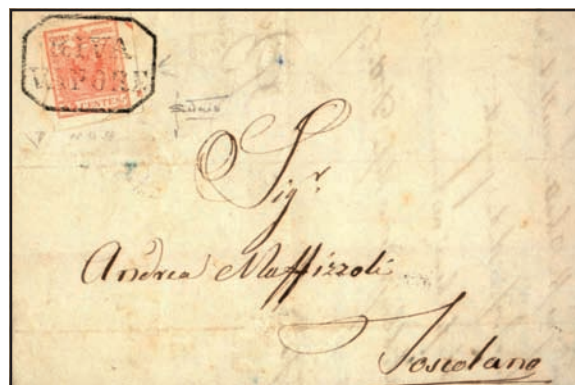 RIVA
VAPORE
CENTES
Sigr.
Andrea Maffizzoli
Toscolano